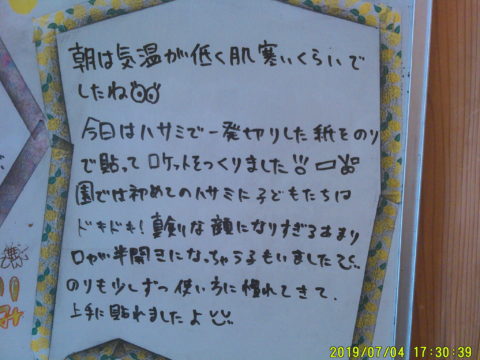 朝は気温が低く肌寒いくらいで
したね
今日はハサミで一発切りした紙をのり
で貼って ロケットをつくりました!!
園では初めてのハサミに子どもたちは
ドキドキ!真剣な顔になりすぎるあまり
口が半開きになっちゃう子もいました
のりも少しずつ使い方に慣れてきて、
上手に貼れましたよ
2019/07/04 17:30:39